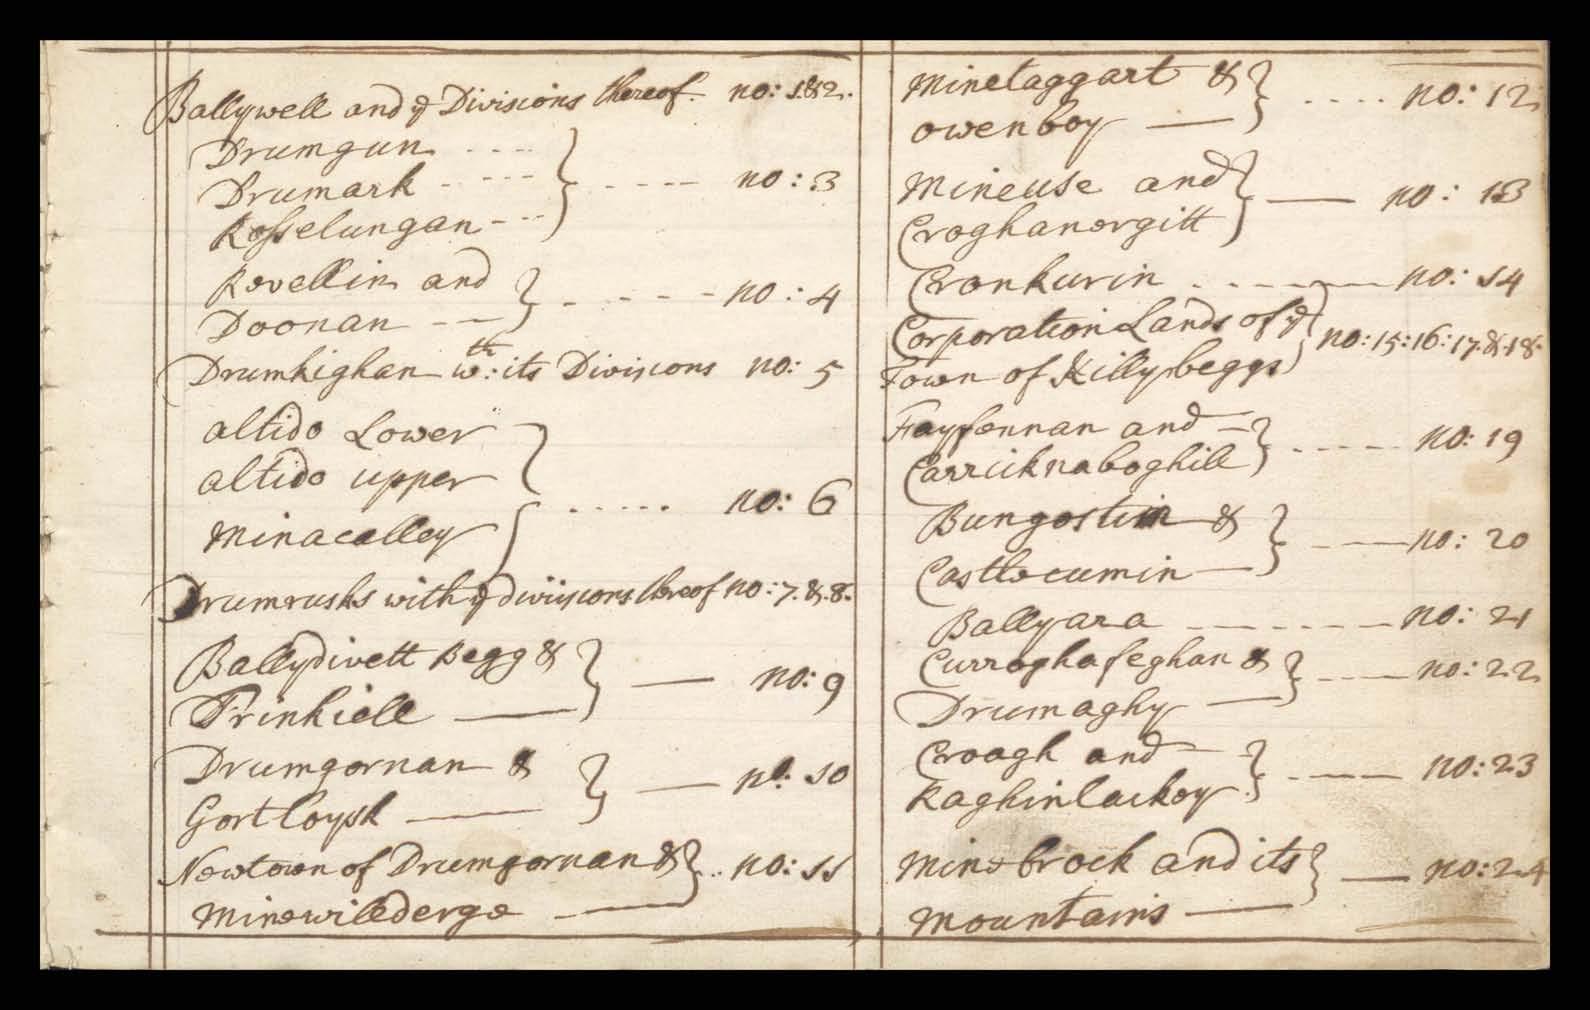 Ballywell and ye Divisions thereof. no: 1.&2.
Drumgun ----
Drumark ----- } ---- no: 3
Rosselungan ---
Rovellin and
Doonan --- } ----- no: 4
Drumkighan wth: its Divisions no: 5
altido Lower
altido upper } ...... no: 6
Minacalley
Drumrusks with ye divisions thereof no: 7. &. 8.
Ballydivett Begg &
Frinkiell — } — no: 9
Drumgornan &
Gortloysk — } — no: 10
Newtown of Drumgornan & } .. no: 11
Minewillderge —
Minetaggart & } .... no: 12
owenboy —
Mineuse and } — no: 13
Croghanorgitt
Cronkurin ------ no: 14
Corporation Lands of ye } no: 15: 16: 17. &. 18.
Town of Killybeggs
Fayfennan and — } ---- no: 19
Carricknaboghill
Bungostin & } --- no: 20
Castlecumin —
Ballyara ------ no: 21
Curraghafeghan & } ---- no: 22
Drumaghy —
Croagh and — } --- no: 23
Raghinlackoy
Minebrock and its } — no: 24
Mountains —